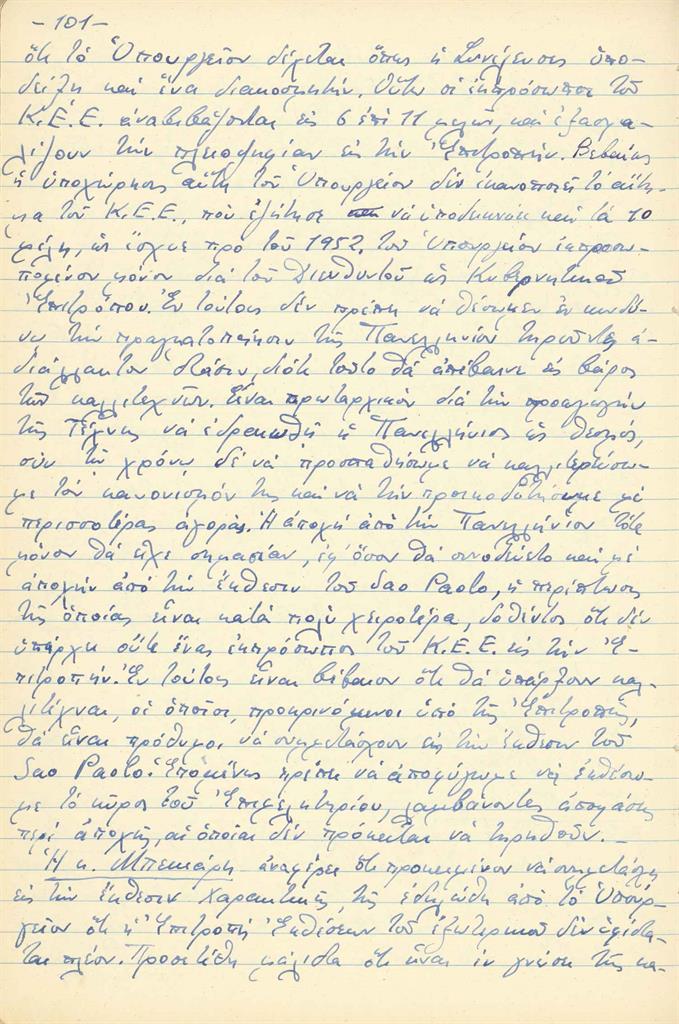 -101-
ὅτι τὸ Ὑπουργεῖον δέχεται ὅπως ἡ Συνέλευσις ὑπο-
δείξῃ καὶ ἕνα διακοσμητήν. Οὕτω οἱ ἐκπρόσωποι τοῦ
Κ.Ε.Ε. ἀναβιβάζονται εἰς 6 ἐπὶ 11 μελῶν, καὶ ἐξασφα-
λίζουν τὴν πλειοψηφίαν εἰς τὴν Ἐπιτροπήν. Βεβαίως
ἡ ὑποχώρησις αὕτη τοῦ Ὑπουργείου δὲν ἱκανοποιεῖ τὸ αἴτη-
μα τοῦ Κ.Ε.Ε., ποὺ ἐζήτησε νὰ ὑποδεικνύῃ καὶ τὰ 10
μέλη, ὡς ἴσχυε πρὸ τοῦ 1952, τοῦ Ὑπουργείου ἐκπροσω-
πουμένου μόνον διὰ τοῦ Διευθυντοῦ ὡς Κυβερνητικοῦ
Ἐπιτρόπου. Ἐν τούτοις δὲν πρέπει νὰ θέσωμεν ἐν κινδύ-
νῳ τὴν πραγματοποίησιν τῆς Πανελληνίου τηροῦντες ἀ-
διάλλακτον στάσιν, διότι τοῦτο θὰ ἀπέβαινε εἰς βάρος
τῶν καλλιτεχνῶν. Εἶναι πρωταρχικὸν διὰ τὴν προαγωγὴν
τῆς Τέχνης νὰ ἑδραιωθῇ ἡ Πανελλήνιος ὡς θεσμός,
σὺν τῷ χρόνῳ δὲ νὰ προσπαθήσωμε νὰ καλλιτερεύσω-
με τὸν κανονισμόν της καὶ νὰ τὴν προικοδοτήσωμε μὲ
περισσοτέρας ἀγοράς. Ἡ ἀποχὴ ἀπὸ τὴν Πανελλήνιον τότε
μόνον θὰ εἶχε σημασίαν, ἐφ' ὅσον θὰ συνωδεύετο καὶ μὲ
ἀποχὴν ἀπὸ τὴν ἔκθεσιν τοῦ Sao Paolo, ἡ περίπτωσις
τῆς ὁποίας εἶναι κατὰ πολὺ χειροτέρα, δοθέντος ὅτι δὲν
ὑπάρχει οὔτε ἕνας ἐκπρόσωπος τοῦ Κ.Ε.Ε. εἰς τὴν Ἐ-
πιτροπήν. Ἐν τούτοις εἶναι βέβαιον ὅτι θὰ ὑπάρξουν καλ-
λιτέχναι, οἱ ὁποῖοι, προκρινόμενοι ὑπὸ τῆς Ἐπιτροπῆς,
θὰ εἶναι πρόθυμοι νὰ συμμετάσχουν εἰς τὴν ἔκθεσιν τοῦ
Sao Paolo. Ἑπομένως πρέπει νὰ ἀποφύγωμε νὰ ἐκθέσω-
με τὸ κῦρος τοῦ Ἐπιμελητηρίου, λαμβάνοντες ἀποφάσεις
περὶ ἀποχῆς, αἱ ὁποῖαι δὲν πρόκειται νὰ τηρηθοῦν._
Ἡ κ. Μπεκιάρη ἀναφέρει ὅτι προκειμένου νὰ συμμετάσχῃ
εἰς τὴν ἔκθεσιν Χαρακτικῆς, τῆς ἐδηλώθη ἀπὸ τὸ Ὑπουρ-
γεῖον ὅτι ἡ Ἐπιτροπὴ Ἐκθέσεων τοῦ ἐξωτερικοῦ δὲν ὑφίστα-
ται πλέον. Προσετέθη μάλιστα ὅτι εἶναι ἐν γνώσει τῆς κα-